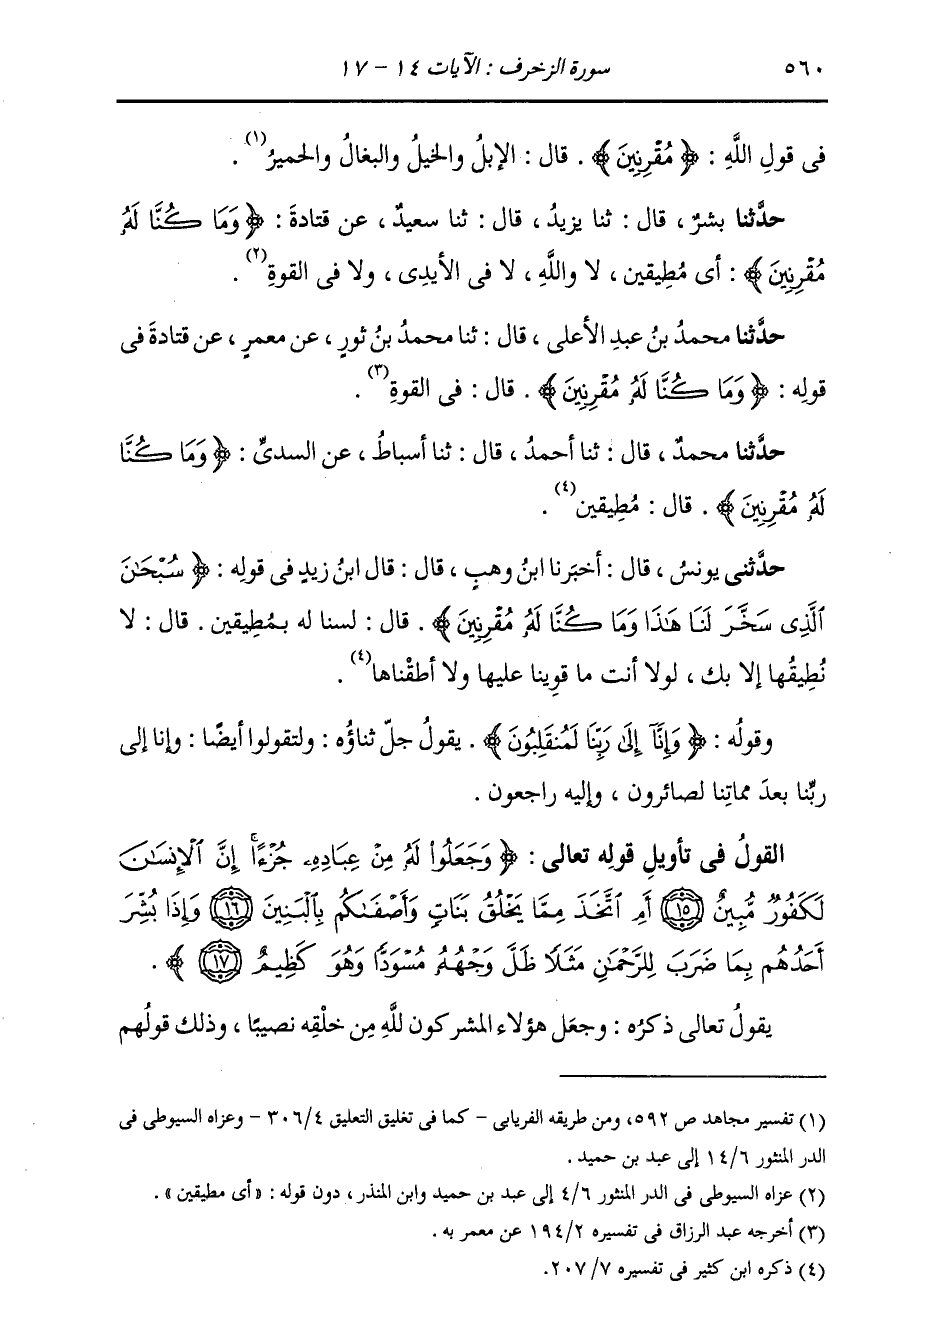 ٥٦٠ سورة الزخرف : الآيات ١٤ - ١٧
فى قولِ اللَّهِ : ﴿ مُقْرِنِينَ ﴾ . قال : الإبلُ والخيلُ والبغالُ والحميرُ(١) .
حدَّثنا بشرٌ ، قال : ثنا يزيدُ ، قال : ثنا سعيدٌ ، عن قتادةَ : ﴿ وَمَا كُنَّا لَهُ
مُقْرِنِينَ ﴾ : أى مُطِيقين ، لا واللَّهِ ، لا فى الأيدِى ، ولا فى القوةِ(٢) .
حدَّثنا محمدُ بنُ عبدِ الأعلى ، قال : ثنا محمدُ بنُ ثورٍ ، عن معمرٍ ، عن قتادةَ فى
قولِه : ﴿ وَمَا كُنَّا لَهُ مُقْرِنِينَ ﴾ . قال : فى القوةِ(٣) .
حدَّثنا محمدٌ ، قال : ثنا أحمدُ ، قال : ثنا أسباطُ ، عن السدىِّ : ﴿ وَمَا كُنَّا
لَهُ مُقْرِنِينَ ﴾ . قال : مُطِيقين(٤) .
حدَّثنى يونسُ ، قال : أخبَرنا ابنُ وهبٍ ، قال : قال ابنُ زيدٍ فى قولِه : ﴿ سُبْحَٰنَ
ٱلَّذِى سَخَّرَ لَنَا هَٰذَا وَمَا كُنَّا لَهُ مُقْرِنِينَ ﴾ . قال : لسنا له بمُطِيقين . قال : لا
نُطِيقُها إلا بك ، لولا أنت ما قوِينا عليها ولا أطقْناها(٤) .
وقولُه : ﴿ وَإِنَّآ إِلَىٰ رَبِّنَا لَمُنقَلِبُونَ ﴾ . يقولُ جلّ ثناؤُه : ولتقولوا أيضًا : وإنا إلى
ربِّنا بعدَ مماتِنا لصائرون ، وإليه راجعون .
القولُ فى تأويلِ قولِه تعالى : ﴿ وَجَعَلُوا۟ لَهُ مِنْ عِبَادِهِۦ جُزْءًا ۚ إِنَّ ٱلْإِنسَٰنَ
لَكَفُورٌ مُّبِينٌ (١٥) أَمِ ٱتَّخَذَ مِمَّا يَخْلُقُ بَنَاتٍ وَأَصْفَىٰكُم بِٱلْبَنِينَ (١٦) وَإِذَا بُشِّرَ
أَحَدُهُم بِمَا ضَرَبَ لِلرَّحْمَٰنِ مَثَلًا ظَلَّ وَجْهُهُۥ مُسْوَدًّا وَهُوَ كَظِيمٌ (١٧) ﴾ .
يقولُ تعالى ذكرُه : وجعَل هؤلاء المشركون للَّهِ مِن خلْقِه نصيبًا ، وذلك قولُهم
(١) تفسير مجاهد ص ٥٩٢، ومن طريقه الفريابى - كما فى تغليق التعليق ٣٠٦/٤ - وعزاه السيوطى فى
الدر المنثور ١٤/٦ إلى عبد بن حميد .
(٢) عزاه السيوطى فى الدر المنثور ٤/٦ إلى عبد بن حميد وابن المنذر ، دون قوله : «أى مطيقين» .
(٣) أخرجه عبد الرزاق فى تفسيره ١٩٤/٢ عن معمر به .
(٤) ذكره ابن كثير فى تفسيره ٢٠٧/٧.